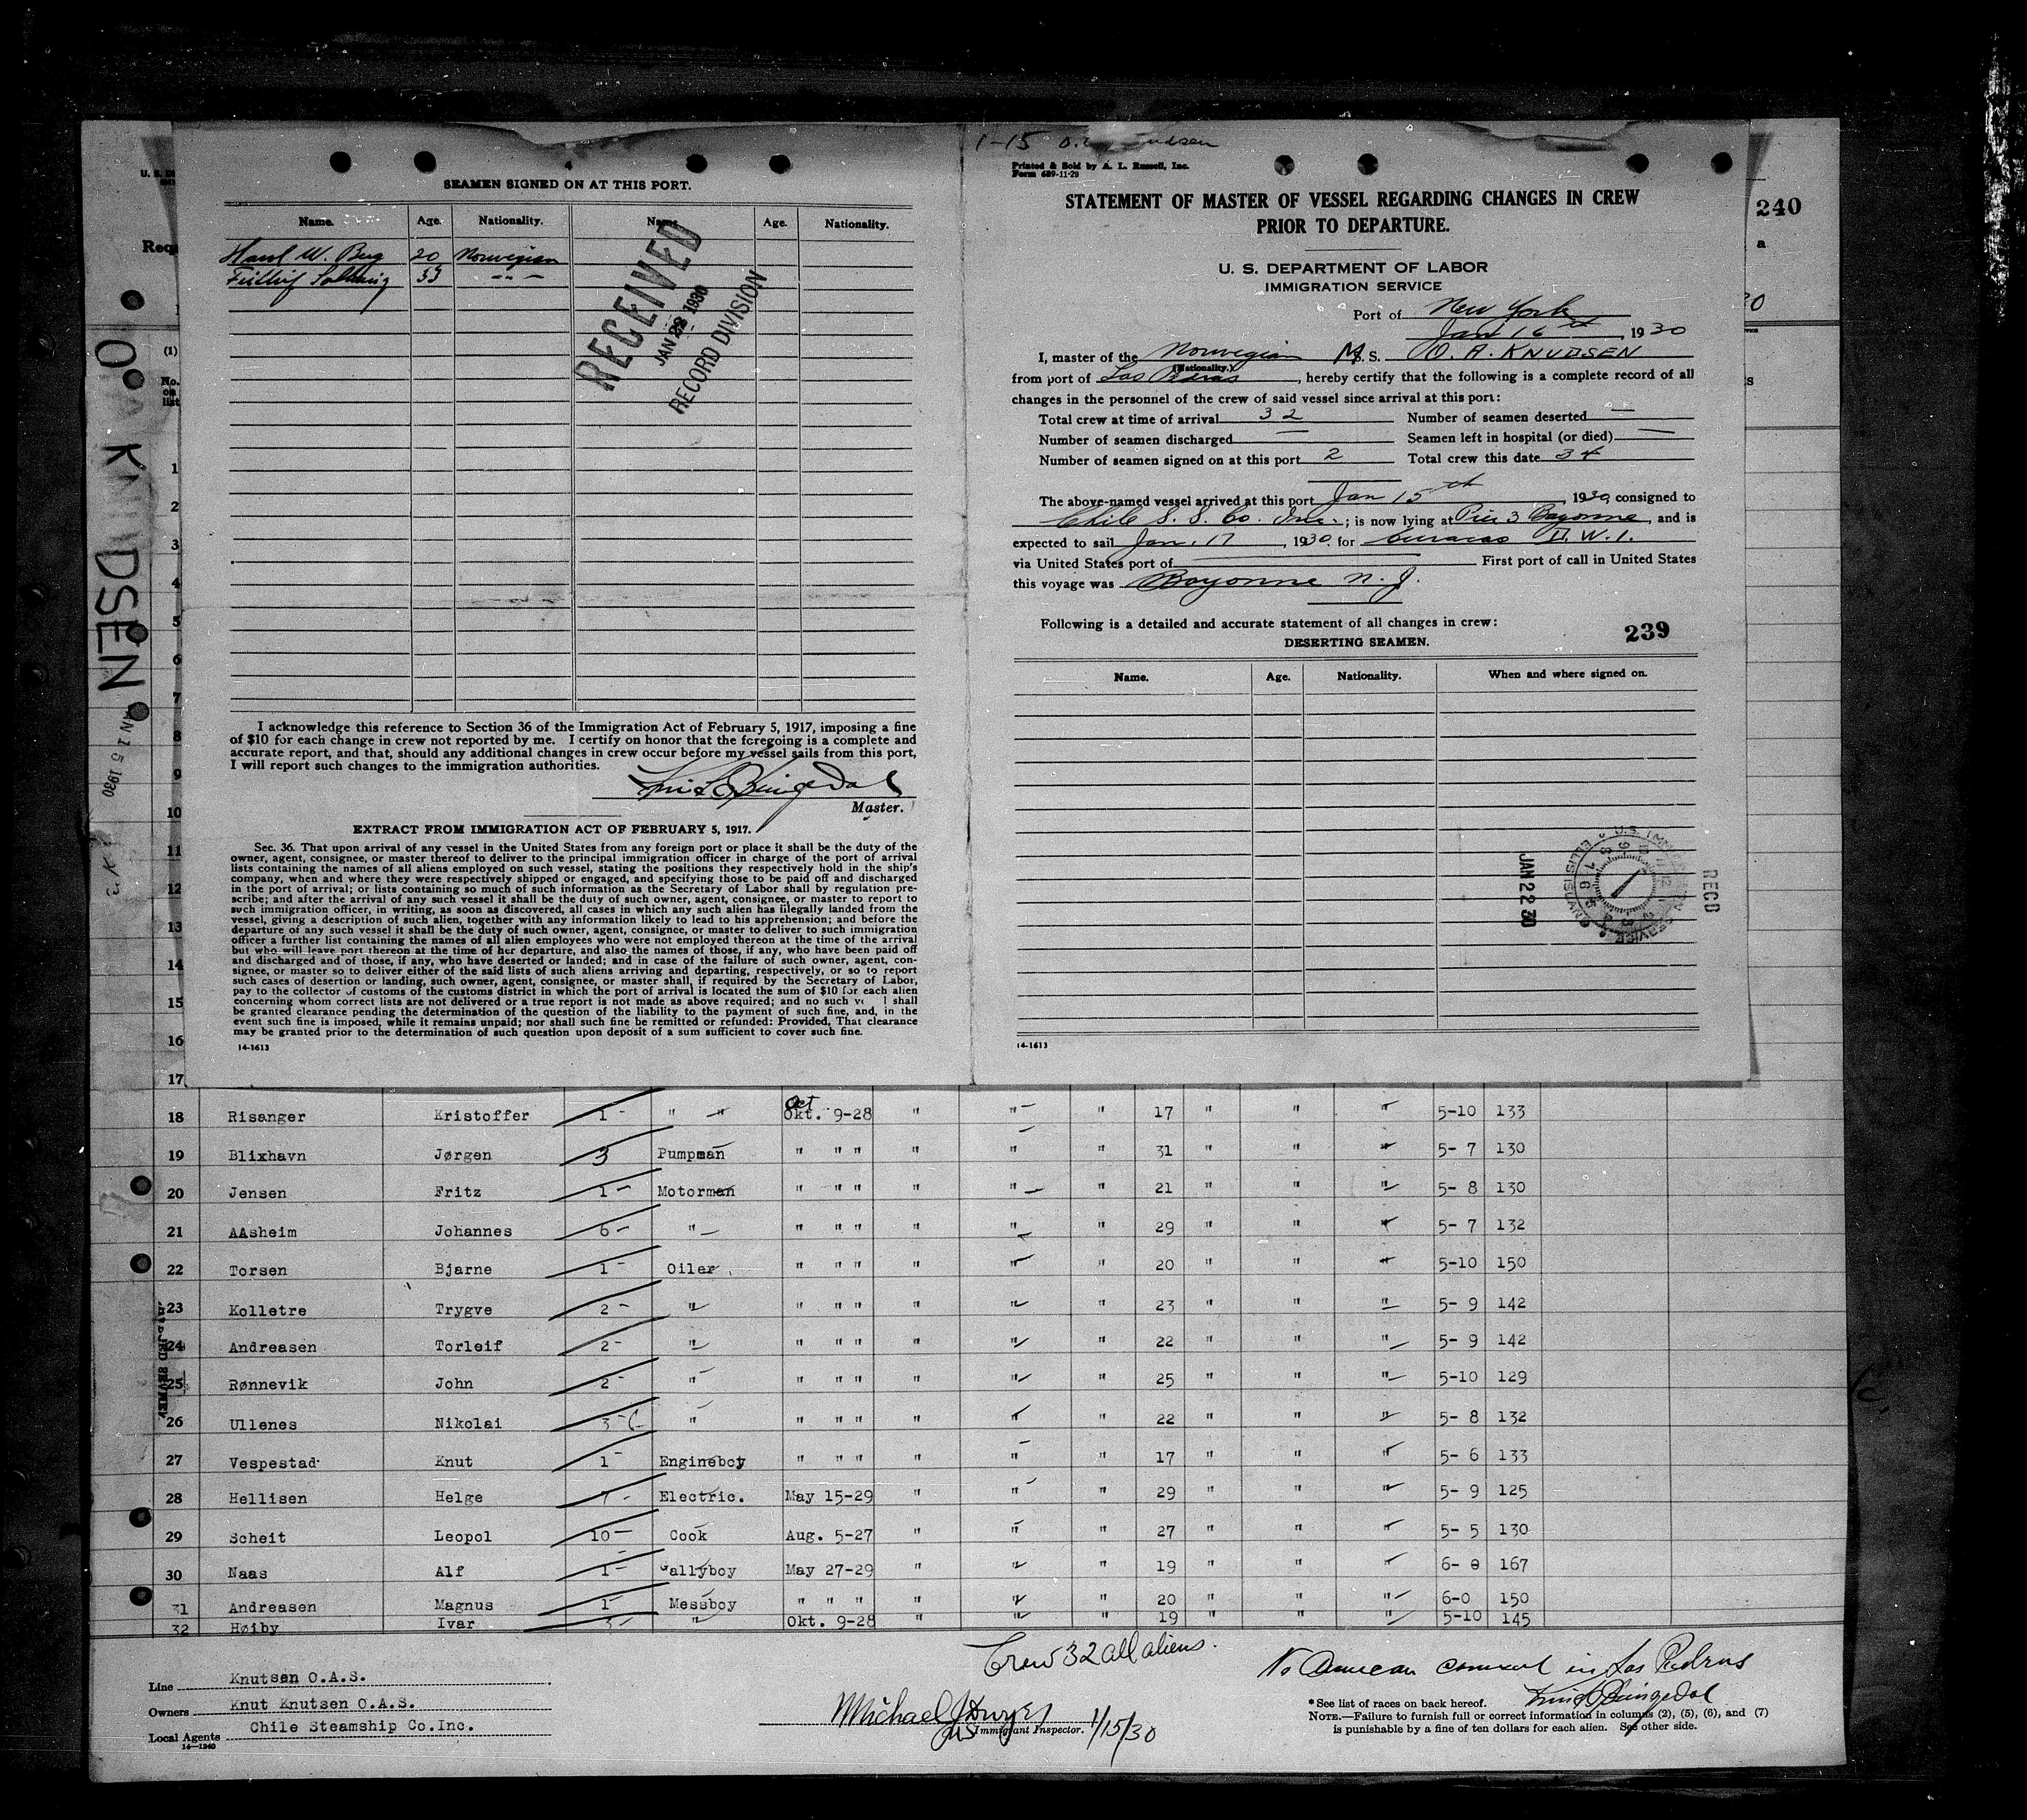 4
SEAMEN SIGNED ON AT THIS PORT.
Name. Age. Nationality. Name. Age. Nationality.
20 Norwegian
33 -"-
RECEIVED
JAN 22 1930
RECORD DIVISION
I acknowledge this reference to Section 36 of the Immigration Act of February 5, 1917, imposing a fine
of $10 for each change in crew not reported by me. I certify on honor that the foregoing is a complete and
accurate report, and that, should any additional changes in crew occur before my vessel sails from this port,
I will report such changes to the immigration authorities.
Master.
EXTRACT FROM IMMIGRATION ACT OF FEBRUARY 5, 1917.
Sec. 36. That upon arrival of any vessel in the United States from any foreign port or place it shall be the duty of the
owner, agent, consignee, or master thereof to deliver to the principal immigration officer in charge of the port of arrival
lists containing the names of all aliens employed on such vessel, stating the positions they respectively hold in the ship's
company, when and where they were respectively shipped or engaged, and specifying those to be paid off and discharged
in the port of arrival; or lists containing so much of such information as the Secretary of Labor shall by regulation pre-
scribe; and after the arrival of any such vessel it shall be the duty of such owner, agent, consignee, or master to report to
such immigration officer, in writing, as soon as discovered, all cases in which any such alien has illegally landed from the
vessel, giving a description of such alien, together with any information likely to lead to his apprehension; and before the
departure of any such vessel it shall be the duty of such owner, agent, consignee, or master to deliver to such immigration
officer a further list containing the names of all alien employees who were not employed thereon at the time of the arrival
but who will leave port thereon at the time of her departure, and also the names of those, if any, who have been paid off
and discharged and of those, if any, who have deserted or landed; and in case of the failure of such owner, agent, con-
signee, or master so to deliver either of the said lists of such aliens arriving and departing, respectively, or so to report
such cases of desertion or landing, such owner, agent, consignee, or master shall, if required by the Secretary of Labor,
pay to the collector of customs of the customs district in which the port of arrival is located the sum of $10 for each alien
concerning whom correct lists are not delivered or a true report is not made as above required; and no such ve l shall
be granted clearance pending the determination of the question of the liability to the payment of such fine, and, in the
event such fine is imposed, while it remains unpaid; nor shall such fine be remitted or refunded: Provided, That clearance
may be granted prior to the determination of such question upon deposit of a sum sufficient to cover such fine.
14-1613
1-15 O.
Printed & Sold by A. L. Russell, Inc.
Form 689-11-29
STATEMENT OF MASTER OF VESSEL REGARDING CHANGES IN CREW
PRIOR TO DEPARTURE.
U. S. DEPARTMENT OF LABOR
IMMIGRATION SERVICE
Port of New York
Jan 16th 1930
I, master of the Norwegian M.S. O. A. KNUDSEN
(Nationality.)
from port of Las Pedras, hereby certify that the following is a complete record of all
changes in the personnel of the crew of said vessel since arrival at this port:
Total crew at time of arrival 32 Number of seamen deserted —
Number of seamen discharged — Seamen left in hospital (or died) —
Number of seamen signed on at this port 2 Total crew this date 34
The above-named vessel arrived at this port Jan 15th, 1930, consigned to
Chile S. S. Co. Inc.; is now lying at Pier 3 Bayonne, and is
expected to sail Jan. 17, 1930 for Curacao D. W. I.
via United States port of — First port of call in United States
this voyage was Bayonne N. J.
Following is a detailed and accurate statement of all changes in crew:
239
DESERTING SEAMEN.
Name. Age. Nationality. When and where signed on.
JAN 22 30
RECD
ELLIS ISLAND
14-1613
240
O A KNUDSEN
JAN 15 1930
(1)
No.
on
list
1
2
3
4
5
6
7
8
9
10
11
12
13
14
15
16
17
18 Risanger Kristoffer 1 - " " Oct. Okt. 9-28 " " " 17 " " " 5-10 133
19 Blixhavn Jørgen 3 Pumpman " " " " " " 31 " " " 5- 7 130
20 Jensen Fritz 1 - Motorman " " " " " " 21 " " " 5- 8 130
21 AAsheim Johannes 6 - " " " " " " " 29 " " " 5- 7 132
22 Torsen Bjarne 1 - Oiler " " " " " " 20 " " " 5-10 150
23 Kolletre Trygve 2 - " " " " " " " 23 " " " 5- 9 142
24 Andreasen Torleif 2 - " " " " " " " 22 " " " 5- 9 142
25 Rønnevik John 2 - " " " " " " " 25 " " " 5-10 129
26 Ullenes Nikolai 3 - " " " " " " " 22 " " " 5- 8 132
27 Vespestad Knut 1 - Engineboy " " " " " " 17 " " " 5- 6 133
28 Hellisen Helge 7 - Electric. May 15-29 " " " 29 " " " 5- 9 125
29 Scheit Leopol 10 - Cook Aug. 5-27 " " " 27 " " " 5- 5 130
30 Naas Alf 1 - Gallyboy May 27-29 " " " 19 " " " 6- 0 167
31 Andreasen Magnus 1 - Messboy " " " " " " 20 " " " 6-0 150
32 Høiby Ivar 3 - " Okt. 9-28 " " " 19 " " " 5-10 145
Crew 32 all aliens.
No American consul in Las Pedras
Line Knutsen O.A.S.
Owners Knut Knutsen O.A.S.
Local Agents Chile Steamship Co.Inc.
14-1240
Michael J Dwyer
Immigrant Inspector. 1/15/30
* See list of races on back hereof.
NOTE.—Failure to furnish full or correct information in columns (2), (5), (6), and (7)
is punishable by a fine of ten dollars for each alien. See other side.